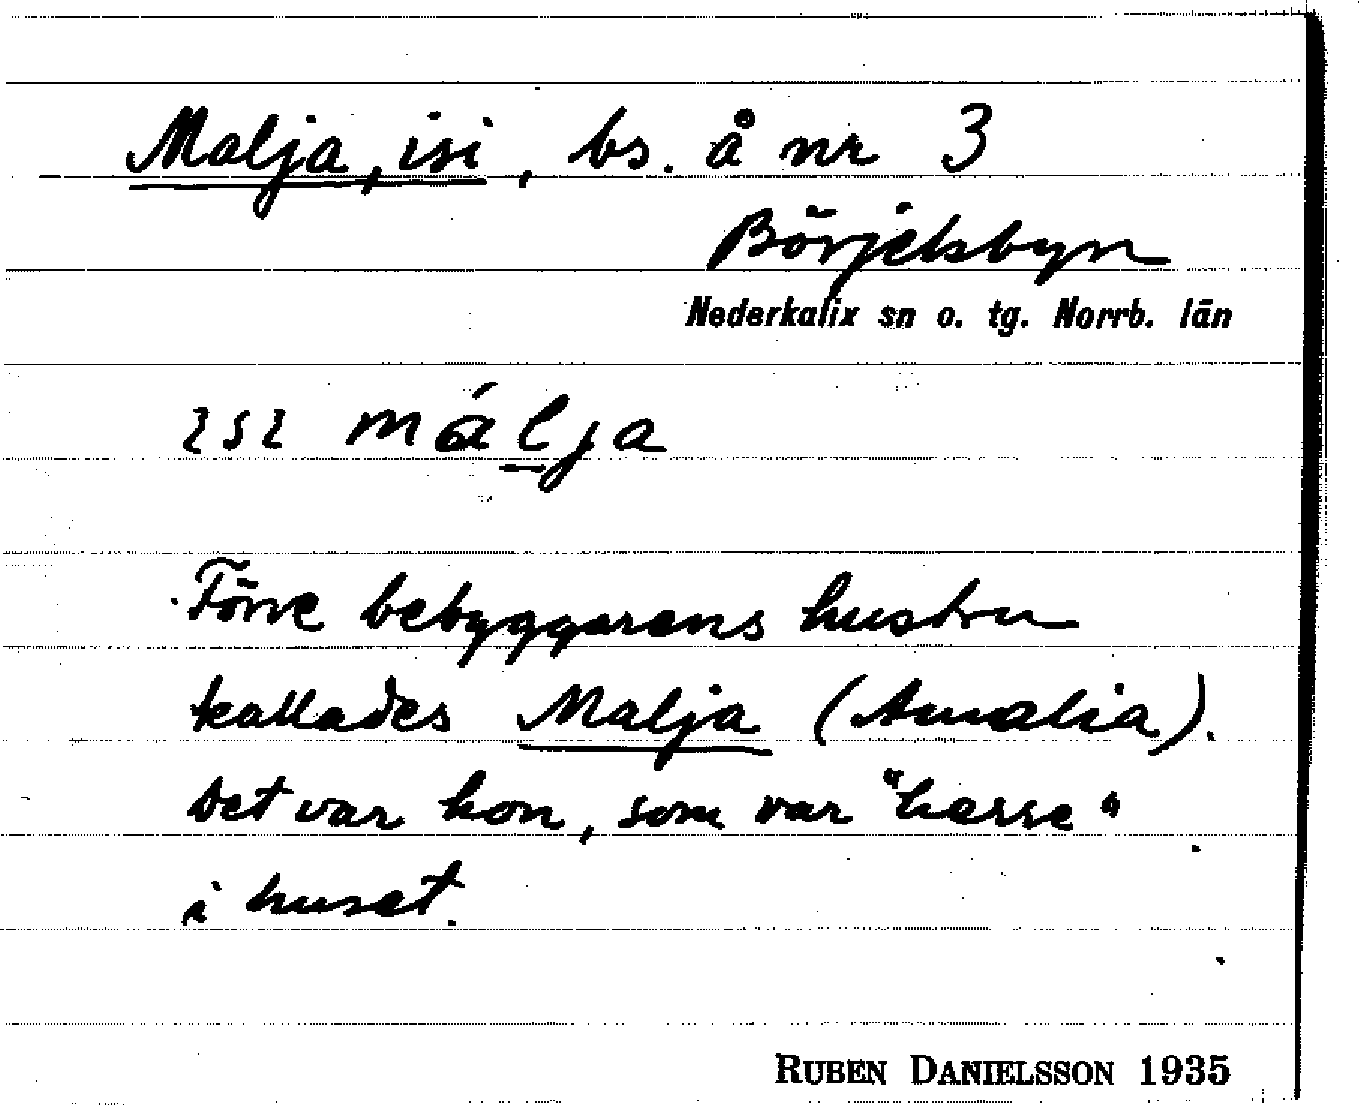 Malja, isi, bs. å nr 3
Börjelsbyn
Nederkalix sn o. tg. Norrb. län
ɩsɩ málja
Förre bebyggarens hustru
kallades Malja (Amalia).
Det var hon, som var "hasse"
i huset.
RUBEN DANIELSSON 1935